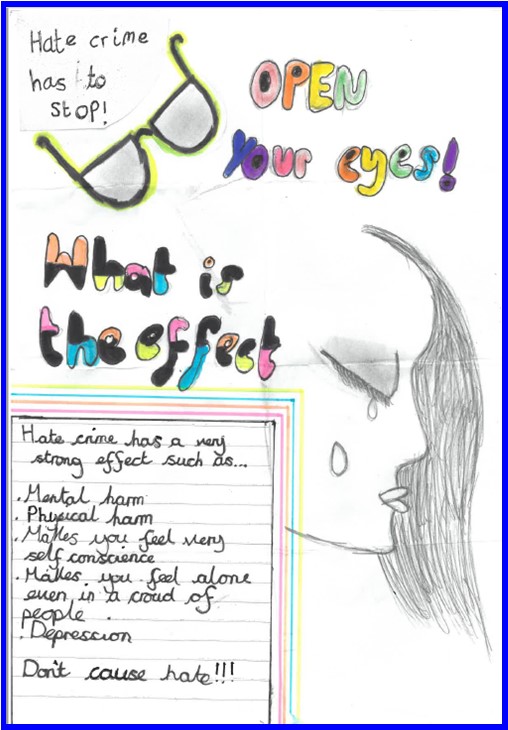 Hate crime
has to
stop!
OPEN
Your eyes!
What is
the effect
Hate crime has a very
strong effect such as...
. Mental harm
. Physical harm
. Makes you feel very
self conscience
. Makes you feel alone
even in a croud of
people .
. Depression
Don't cause hate!!!